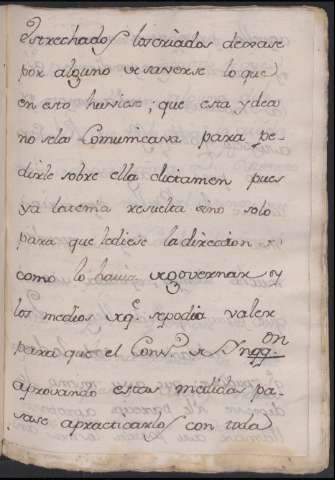 estrechados los criados dexase
por alguno de saverse lo que
en esto huviese; que esta ydea
no sela Comunicava para pe-
dirle sobre ella dictamen pues
ya la tenia resuelta sino solo
para que le diese la direccion de
como lo havia de governar y
los medios de q.e se podia valer
para que el Cons.o de Ynqq.on
aprovando estas medidas pa-
sase a practicarlos con toda